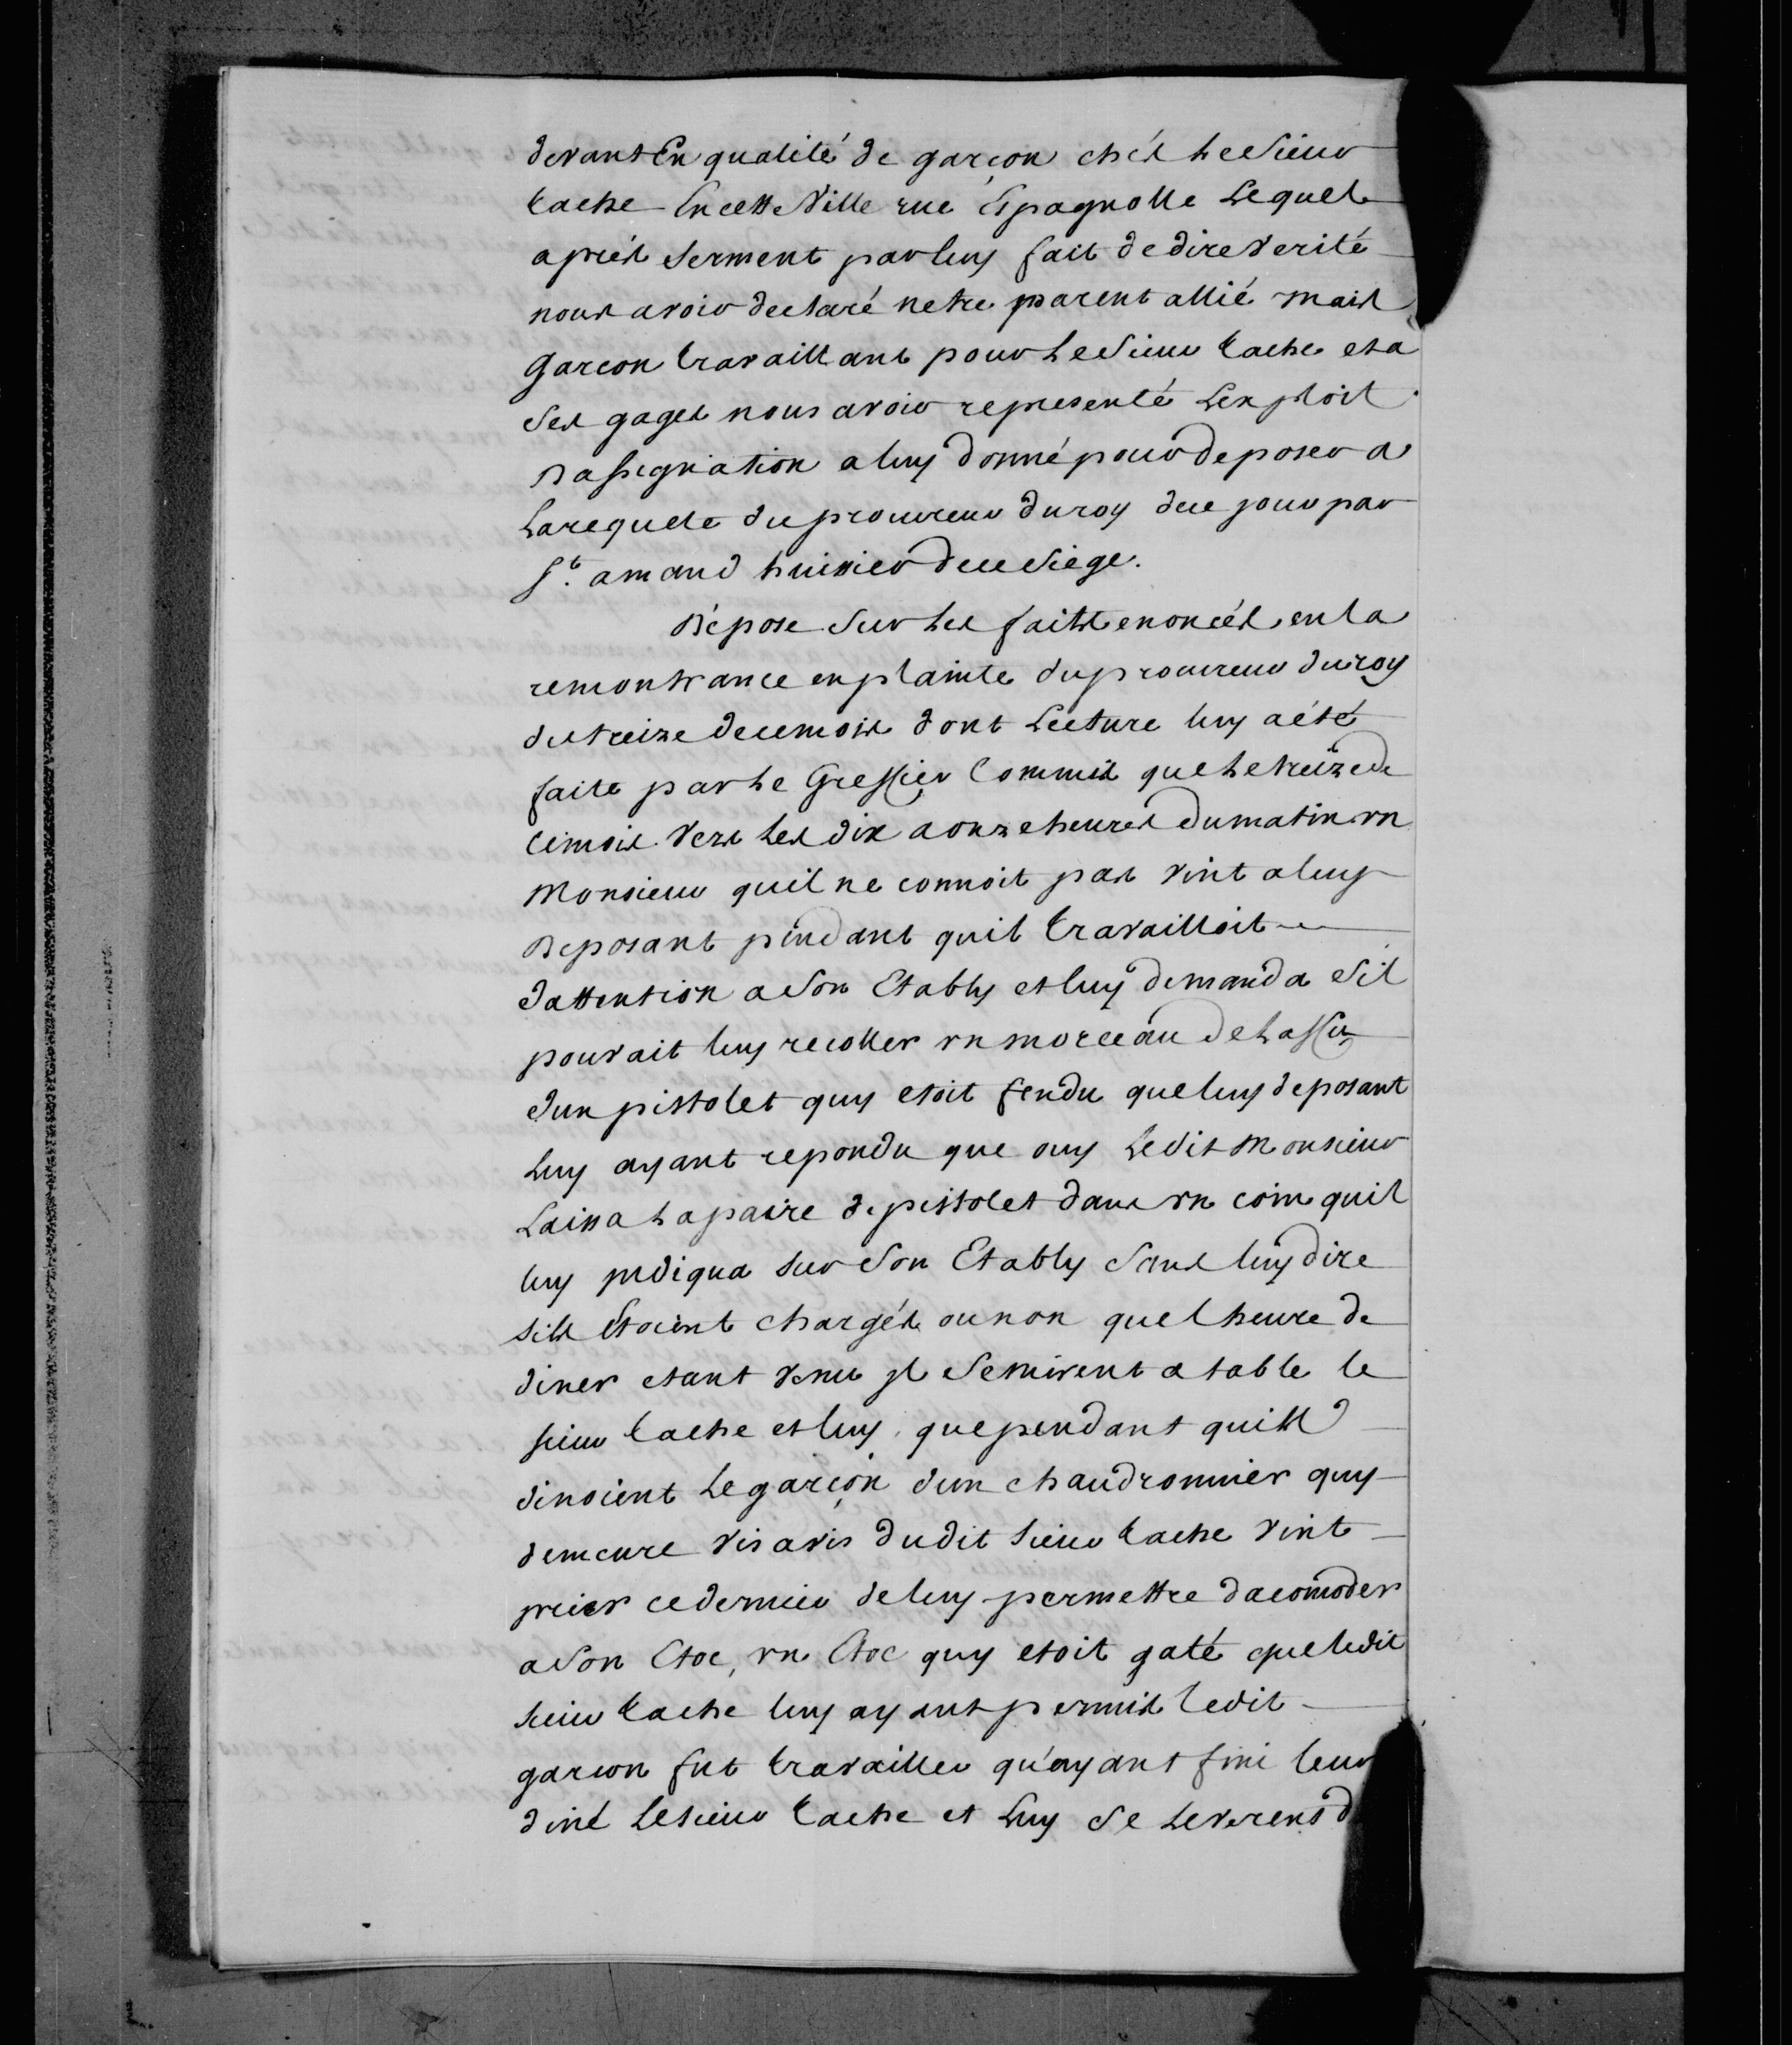 devant En qualité de garçon chés Le Sieur
tache En cette Ville rue Espagnolle Lequel
aprés Serment par luy fait de dire Verité
nous avoir declaré netre parent allié mais
Garcon travaillant pour Le Sieur tache et a
Ses gages nous avoir representé Lexploit
Dassignation a luy donné pour deposer a
La requete du procureur du roy de ce jour par
St. amand huissier de ce Siege.
Dépose Sur Les faits enoncés en la
remontrance en plainte du procureur du roy
du treize de ce mois dont Lecture luy a été
faite par Le Greffier Commis que Le treize de
ce mois Vers Les dix a onze heures du matin vn
Monsieur quil ne connoit pas vint a luy
Deposant pendant quil travailloit
dattention a Son Etably et luy demanda Sil
pouvait luy recoller vn morceau de La ffu
dun pistolet quy etoit fendu que luy deposant
Luy ayant repondu que ouy Ledit Monsieur
Laissa La paire de pistolet dans vn coin quil
luy jndiqua Sur Son Etably Sans luy dire
Sils Etoient chargés ou non que Lheure de
diner etant venu jl Se mirent a table le
sieur tache et luy que pendant quill
dinoient Le garçon dun chaudronnier quy
demeure vis avis dudit Sieur tache vint
prier ce dernier de luy permettre dacomoder
a Son Etoc, vn Etoc quy etoit gaté que ledit
Sieur tache luy ayant permis Ledit
garcon fut travailler qu'ayant fini leur
diné Le Sieur tache et Luy Se Leverent d